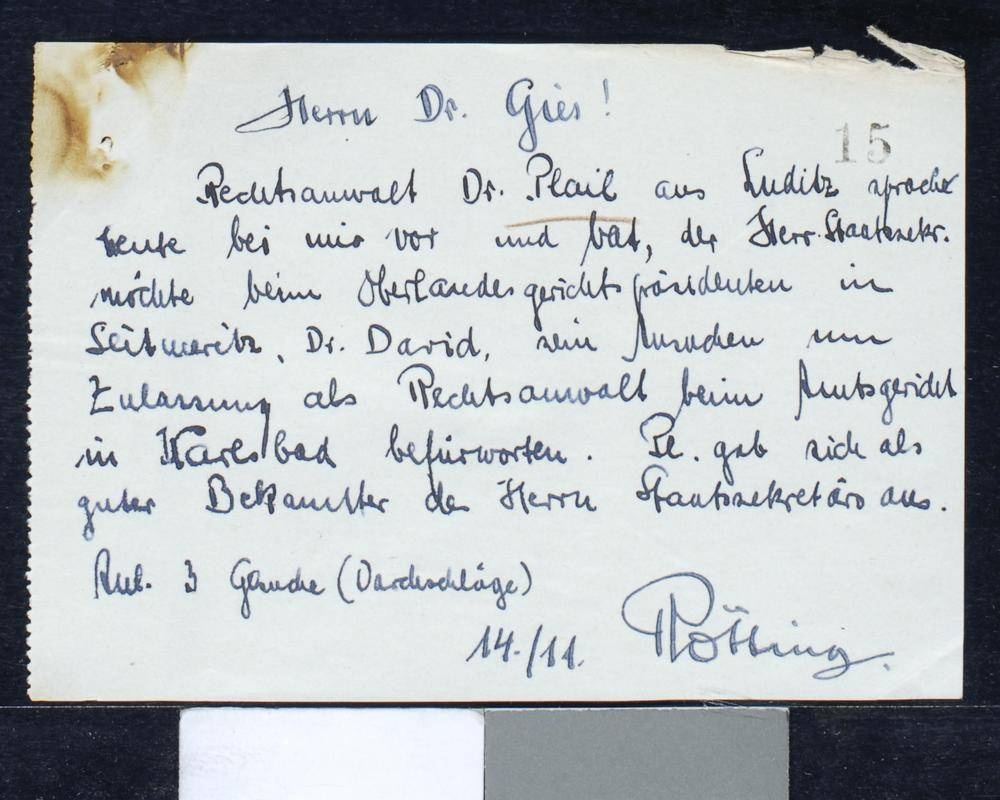 Herrn Dr. Gies!
15
Rechtsanwalt Dr. Plail aus Luditz sprach
heute bei mir vor und bat, der Herr Staatssekr.
möchte beim Oberlandesgerichtspräsidenten in
Leitmeritz, Dr. David, sein Ansuchen um
Zulassung als Rechtsanwalt beim Amtsgericht
in Karlsbad befürworten. Pl. gab sich als
guter Bekannter des Herrn Staatssekretärs aus.
3 (Durchschläge)
14./11.